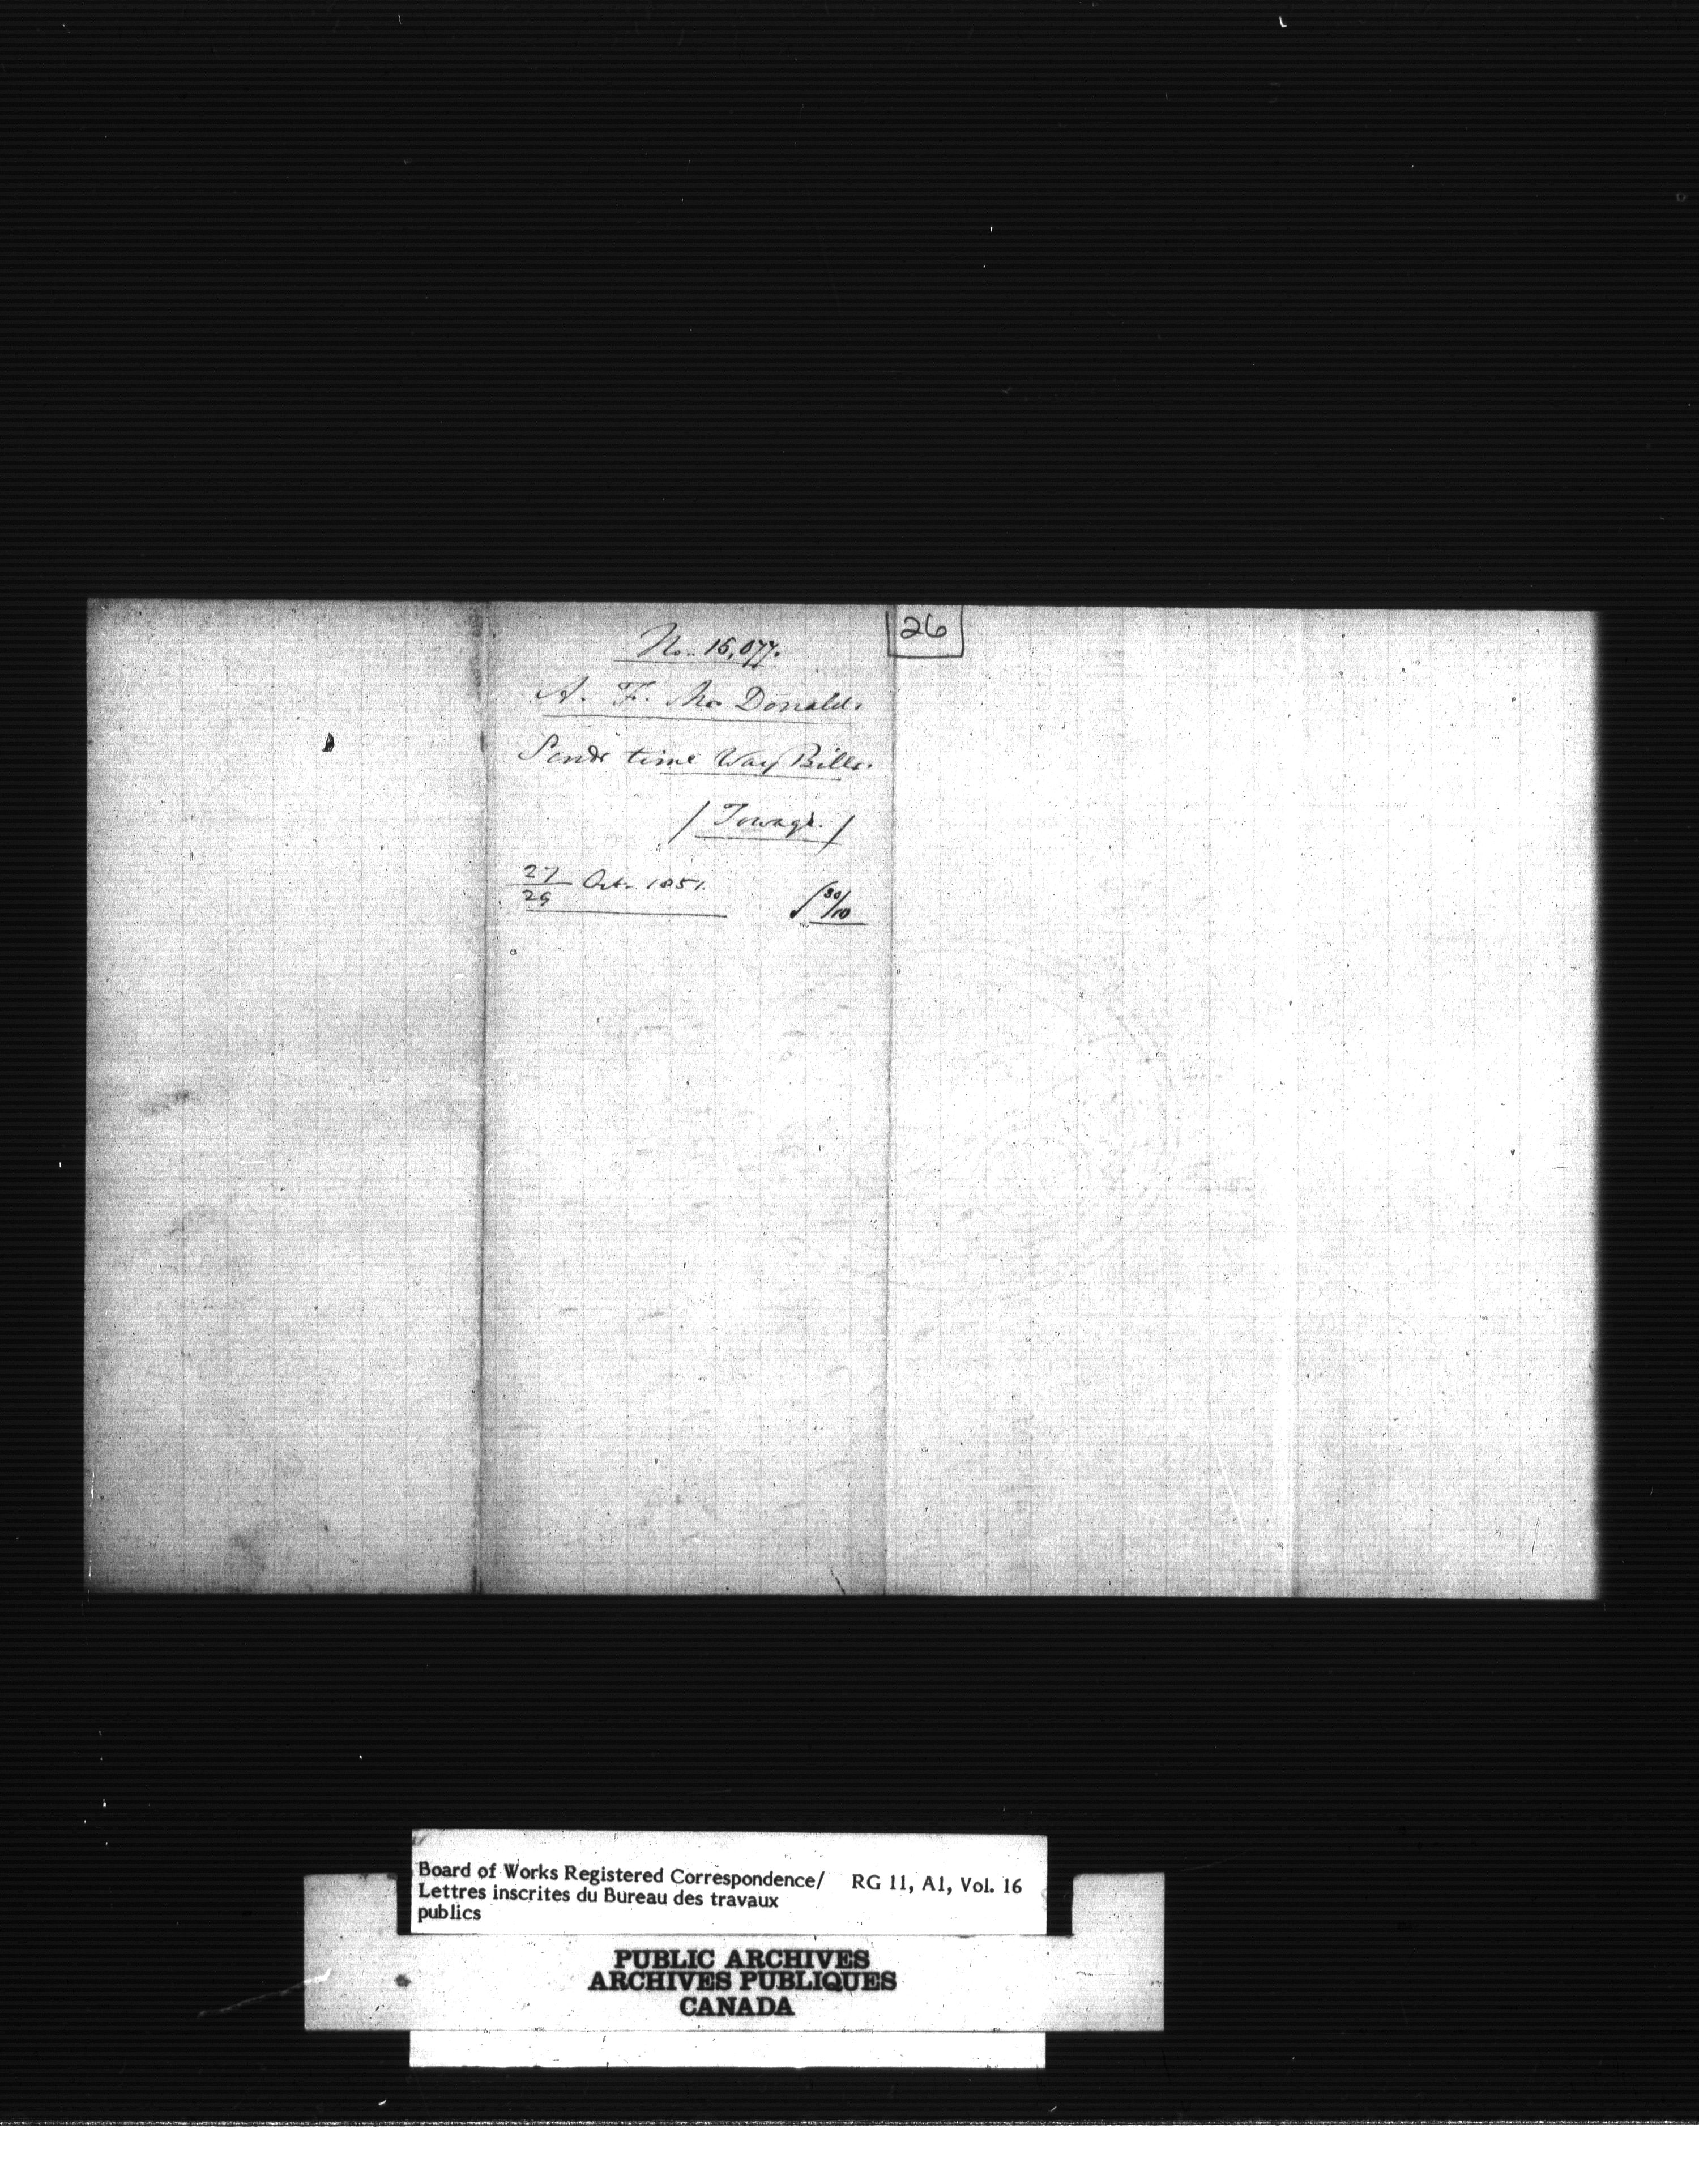 26
No. 15,077.
A. F. Mc Donald.
Sends time Way Bills.
/ Towage. /
27
29 Oct. 1851.
30/10
Board of Works Registered Correspondence/ RG 11, A1, Vol. 16
Lettres inscrites du Bureau des travaux
publics
PUBLIC ARCHIVES
ARCHIVES PUBLIQUES
CANADA